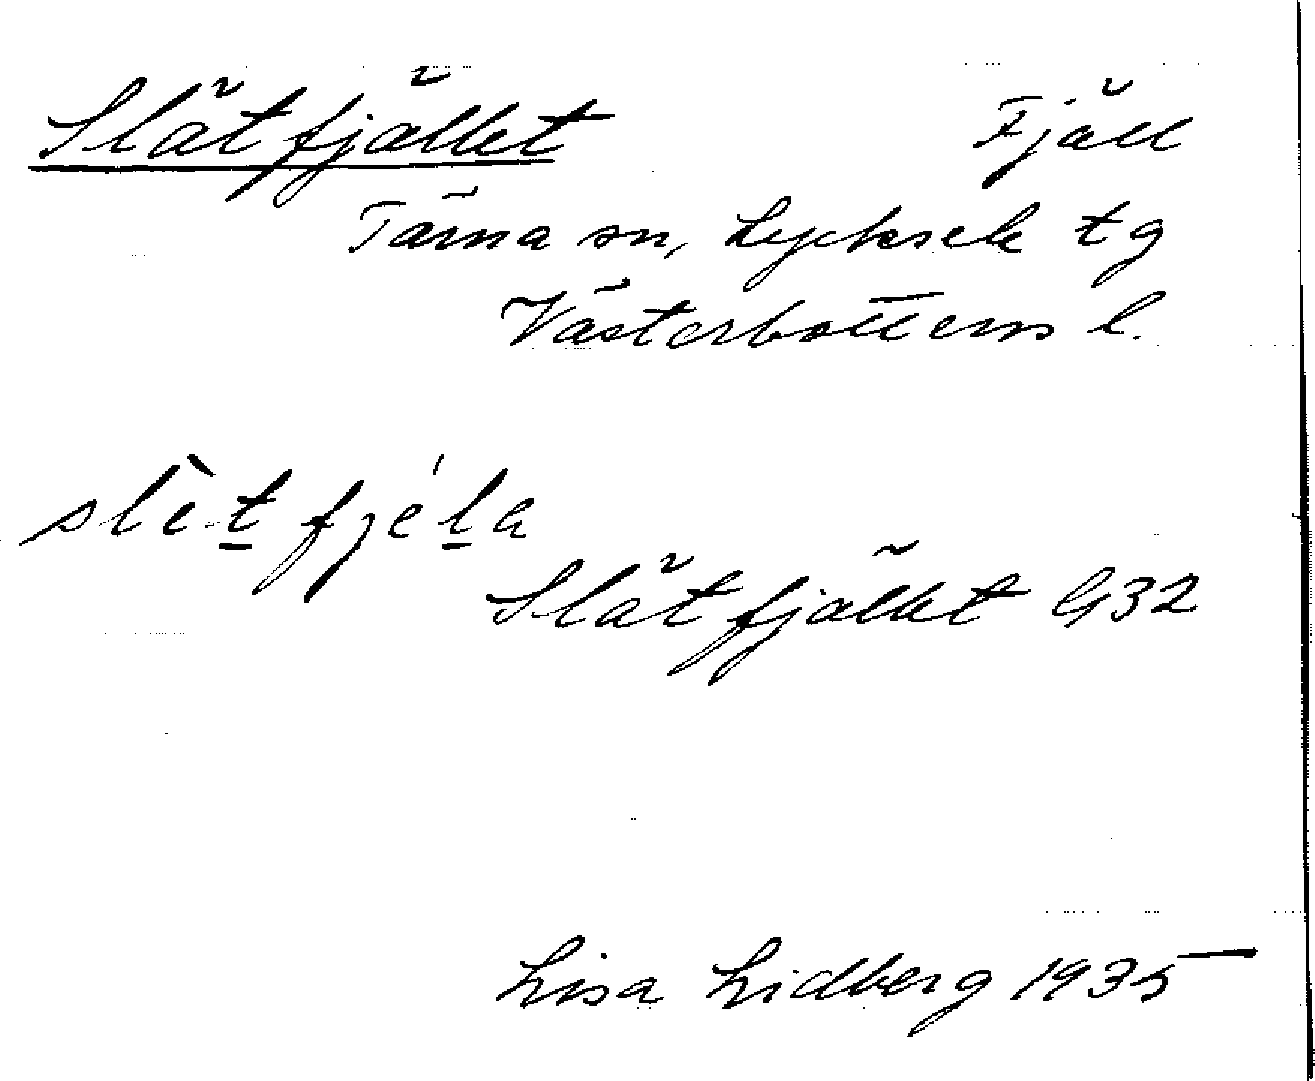 Slätfjället Fjäll
Tärna sn, Lycksele tg
Västerbottens l.
slèt̲fjél̲a
Slätfjället G32
Lisa Lidberg 1935